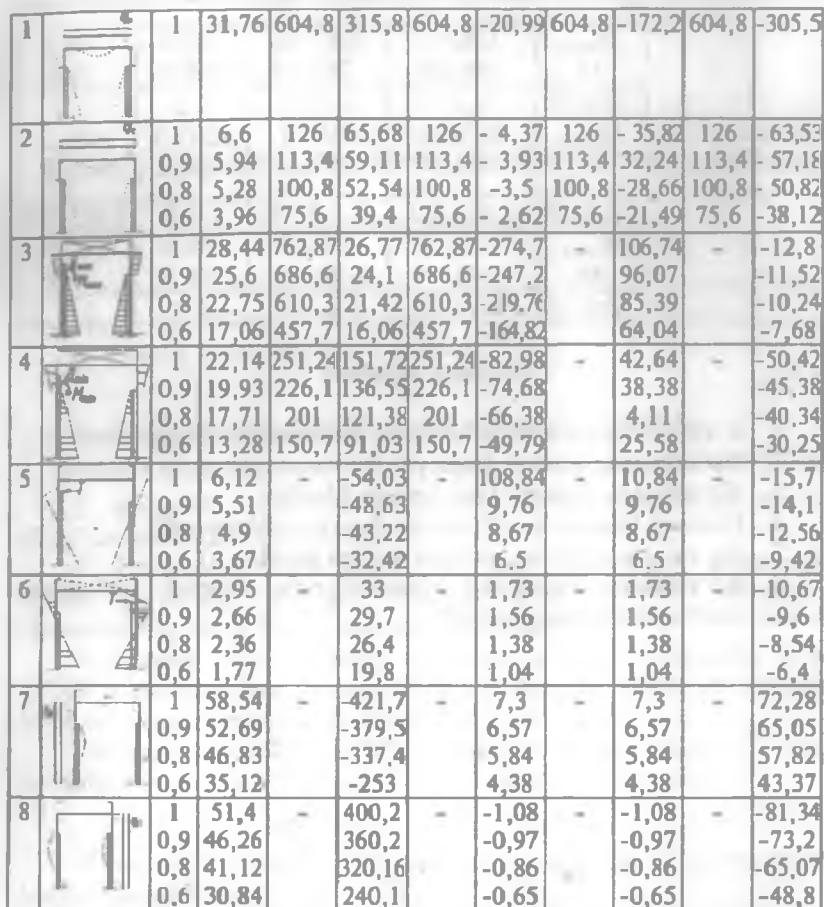 1 1 31,76 604,8 315,8 604,8 -20,99 604,8 -172,2 604,8 -305,5
2 1 6,6 126 65,68 126 - 4,37 126 - 35,82 126 - 63,53
0,9 5,94 113,4 59,11 113,4 - 3,93 113,4 32,24 113,4 - 57,18
0,8 5,28 100,8 52,54 100,8 -3,5 100,8 -28,66 100,8 - 50,82
0,6 3,96 75,6 39,4 75,6 - 2,62 75,6 -21,49 75,6 -38,12
3 1 28,44 762,87 26,77 762,87 -274,7 - 106,74 - -12,8
0,9 25,6 686,6 24,1 686,6 -247,2 96,07 -11,52
0,8 22,75 610,3 21,42 610,3 -219,76 85,39 -10,24
0,6 17,06 457,7 16,06 457,7 -164,82 64,04 -7,68
4 1 22,14 251,24 151,72 251,24 -82,98 - 42,64 - -50,42
0,9 19,93 226,1 136,55 226,1 -74,68 38,38 -45,38
0,8 17,71 201 121,38 201 -66,38 4,11 -40,34
0,6 13,28 150,7 91,03 150,7 -49,79 25,58 -30,25
5 1 6,12 - -54,03 - 108,84 - 10,84 - -15,7
0,9 5,51 -48,63 9,76 9,76 -14,1
0,8 4,9 -43,22 8,67 8,67 -12,56
0,6 3,67 -32,42 6,5 6,5 -9,42
6 1 2,95 - 33 - 1,73 - 1,73 - -10,67
0,9 2,66 29,7 1,56 1,56 -9,6
0,8 2,36 26,4 1,38 1,38 -8,54
0,6 1,77 19,8 1,04 1,04 -6,4
7 1 58,54 - -421,7 - 7,3 - 7,3 - 72,28
0,9 52,69 -379,5 6,57 6,57 65,05
0,8 46,83 -337,4 5,84 5,84 57,82
0,6 35,12 -253 4,38 4,38 43,37
8 1 51,4 - 400,2 - -1,08 - -1,08 - -81,34
0,9 46,26 360,2 -0,97 -0,97 -73,2
0,8 41,12 320,16 -0,86 -0,86 -65,07
0,6 30,84 240,1 -0,65 -0,65 -48,8